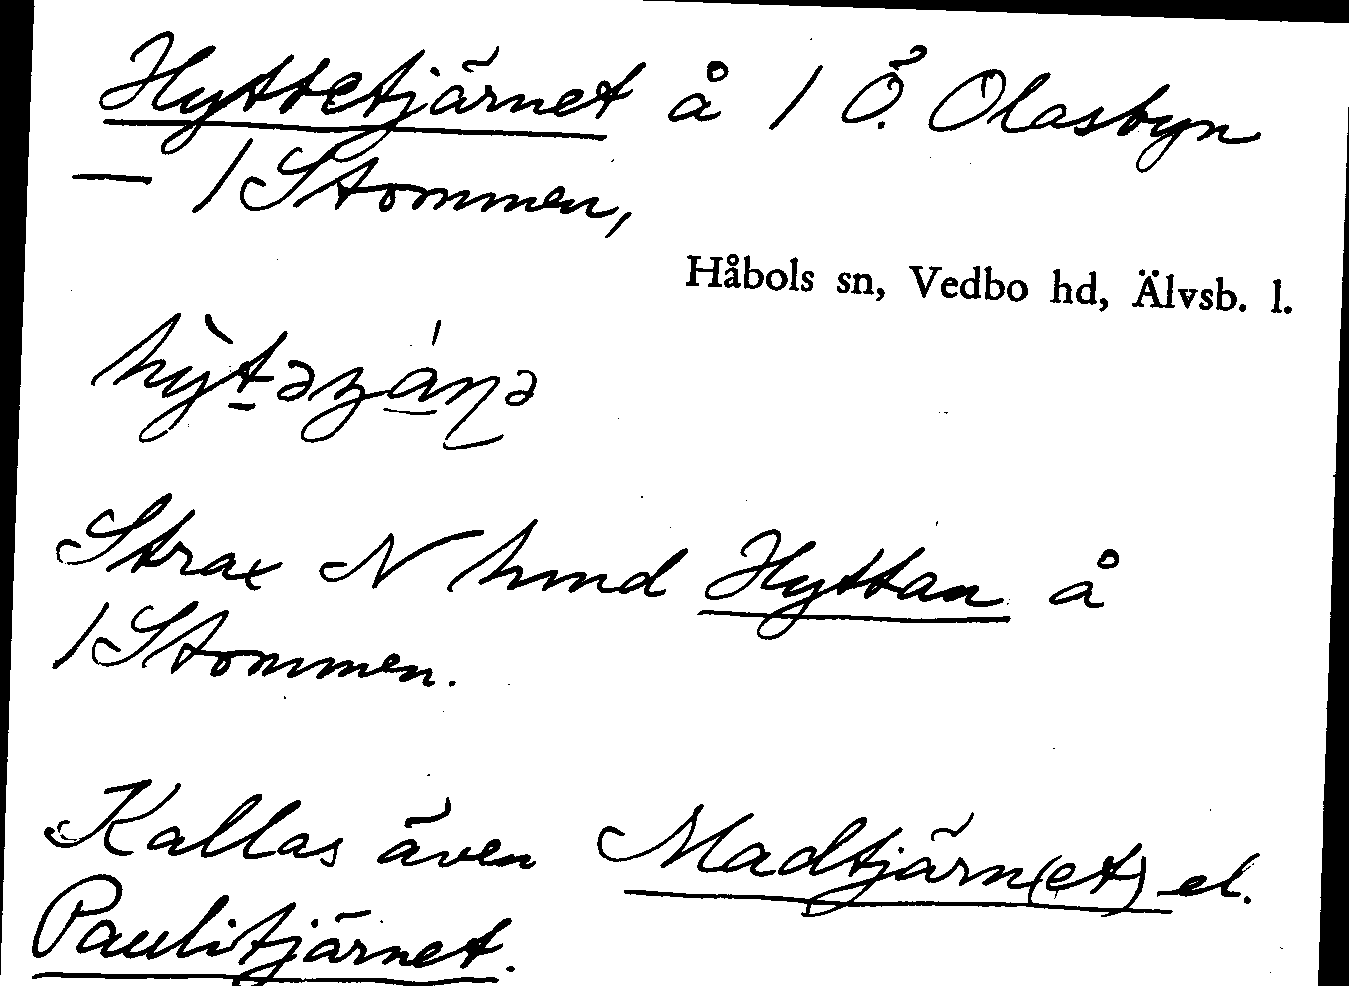 Hyttetjärnet å / Ö. Olasbyn
— / Stommen,
Håbols sn, Vedbo hd, Älvsb. l.
Strax N hmd Hyttan å
/ Stommen.
Kallas även Madtjärn(et) el.
Paulitjärnet.